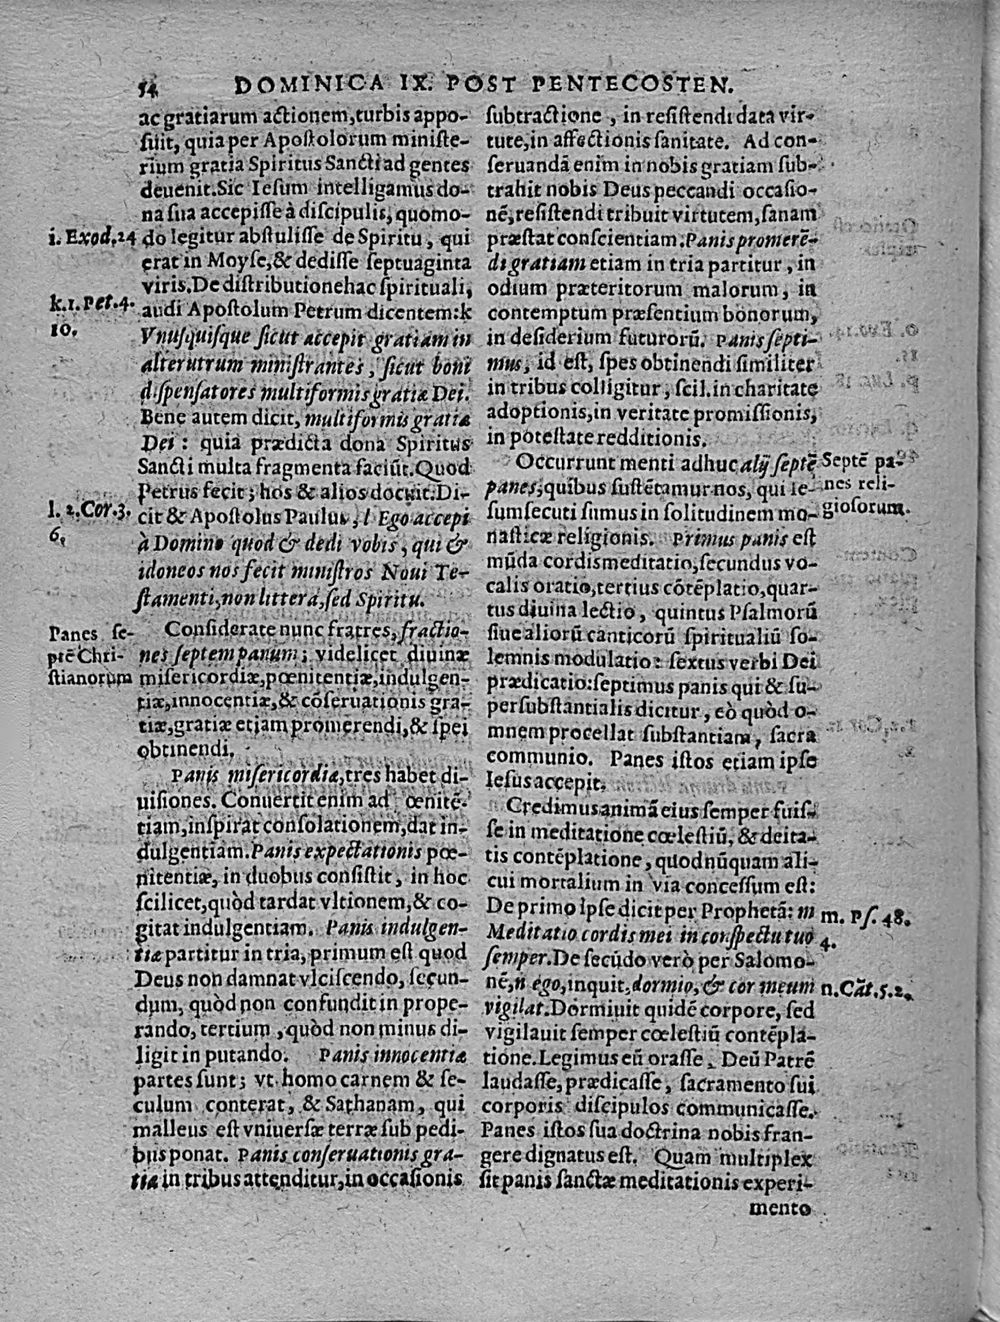 54 DOMINICA IX. POST PENTECOSTEN.
ac gratiarum actionem, turbis appo-
suit, quia per Apostolorum ministe-
rium gratia Spiritus Sancti ad gentes
deuenit. Sic Iesum intelligamus do-
na sua accepisse à discipulis, quomo-
i. Exod. 24
do legitur abstulisse de Spiritu, qui
erat in Moyse, & dedisse septuaginta
viris. De distributione hac spirituali,
k. 1. Pet. 4.
10.
audi Apostolum Petrum dicentem: k
Vnusquisque sicut accepit gratiam in
alterutrum ministrantes, sicut boni
dispensatores multiformis gratiæ Dei.
Bene autem dicit, multiformis gratiæ
Dei: quia prædicta dona Spiritus
Sancti multa fragmenta faciũt. Quod
Petrus fecit; hos & alios docuit. Di-
l. 2. Cor. 3.
6.
cit & Apostolus Paulus, l Ego accepi
à Domino quod & dedi vobis, qui &
idoneos nos fecit ministros Noui Te-
stamenti, non littera, sed Spiritu.
Panes se-
ptẽ Chri-
stianorum
Considerate nunc fratres, fractio-
nes septem panum; videlicet diuinæ
misericordiæ, pœnitentiæ, indulgen-
tiæ, innocentiæ, & cõseruationis gra-
tiæ, gratiæ etiam promerendi, & spei
obtinendi.
Panis misericordiæ, tres habet di-
uisiones. Conuertit enim ad œnitẽ-
tiam, inspirat consolationem, dat in-
dulgentiam. Panis expectationis pœ-
nitentiæ, in duobus consistit, in hoc
scilicet, quòd tardat vltionem, & co-
gitat indulgentiam. Panis indulgen-
tiæ partitur in tria, primum est quod
Deus non damnat vlciscendo, secun-
dum, quòd non confundit in prope-
rando, tertium, quòd non minus di-
ligit in putando. Panis innocentiæ
partes sunt; vt homo carnem & se-
culum conterat, & Sathanam, qui
malleus est vniuersæ terræ sub pedi-
bus ponat. Panis conseruationis gra-
tiæ in tribus attenditur, in occasionis
subtractione, in resistendi data vir-
tute, in affectionis sanitate. Ad con-
seruandã enim in nobis gratiam sub-
trahit nobis Deus peccandi occasio-
nẽ, resistendi tribuit virtutem, sanam
præstat conscientiam. Panis promerẽ-
di gratiam etiam in tria partitur, in
odium præteritorum malorum, in
contemptum præsentium bonorum,
in desiderium futurorũ. Panis septi-
mus, id est, spes obtinendi similiter
in tribus colligitur, scil. in charitate
adoptionis, in veritate promissionis,
in potestate redditionis.
Occurrunt menti adhuc alij septẽ
Septẽ pa-
nes reli-
giosorum.
panes, quibus sustẽtamur nos, qui Ie-
sum secuti sumus in solitudinem mo-
nasticæ religionis. Primus panis est
mũda cordis meditatio, secundus vo-
calis oratio, tertius cõtẽplatio, quar-
tus diuina lectio, quintus Psalmorũ
siue aliorũ canticorũ spiritualiũ so-
lemnis modulatio: sextus verbi Dei
prædicatio: septimus panis qui & su-
persubstantialis dicitur, eò quòd o-
mnem procellat substantiam, sacra
communio. Panes istos etiam ipse
Iesus accepit.
Credimus animã eius semper fuis-
se in meditatione cœlestiũ, & deita-
tis contẽplatione, quod nũquam ali-
cui mortalium in via concessum est:
De primo Ipse dicit per Prophetã: m
m. Ps. 48.
4.
Meditatio cordis mei in conspectu tuo
semper. De secũdo verò per Salomo-
nẽ, n ego, inquit, dormio, & cor meum
n. Cãt. 5. 2.
vigilat. Dormiuit quidẽ corpore, sed
vigilauit semper cœlestiũ contẽpla-
tione. Legimus eũ orasse. Deũ Patrẽ
laudasse, prædicasse, sacramento sui
corporis discipulos communicasse.
Panes istos sua doctrina nobis fran-
gere dignatus est. Quam multiplex
sit panis sanctæ meditationis experi-
mento